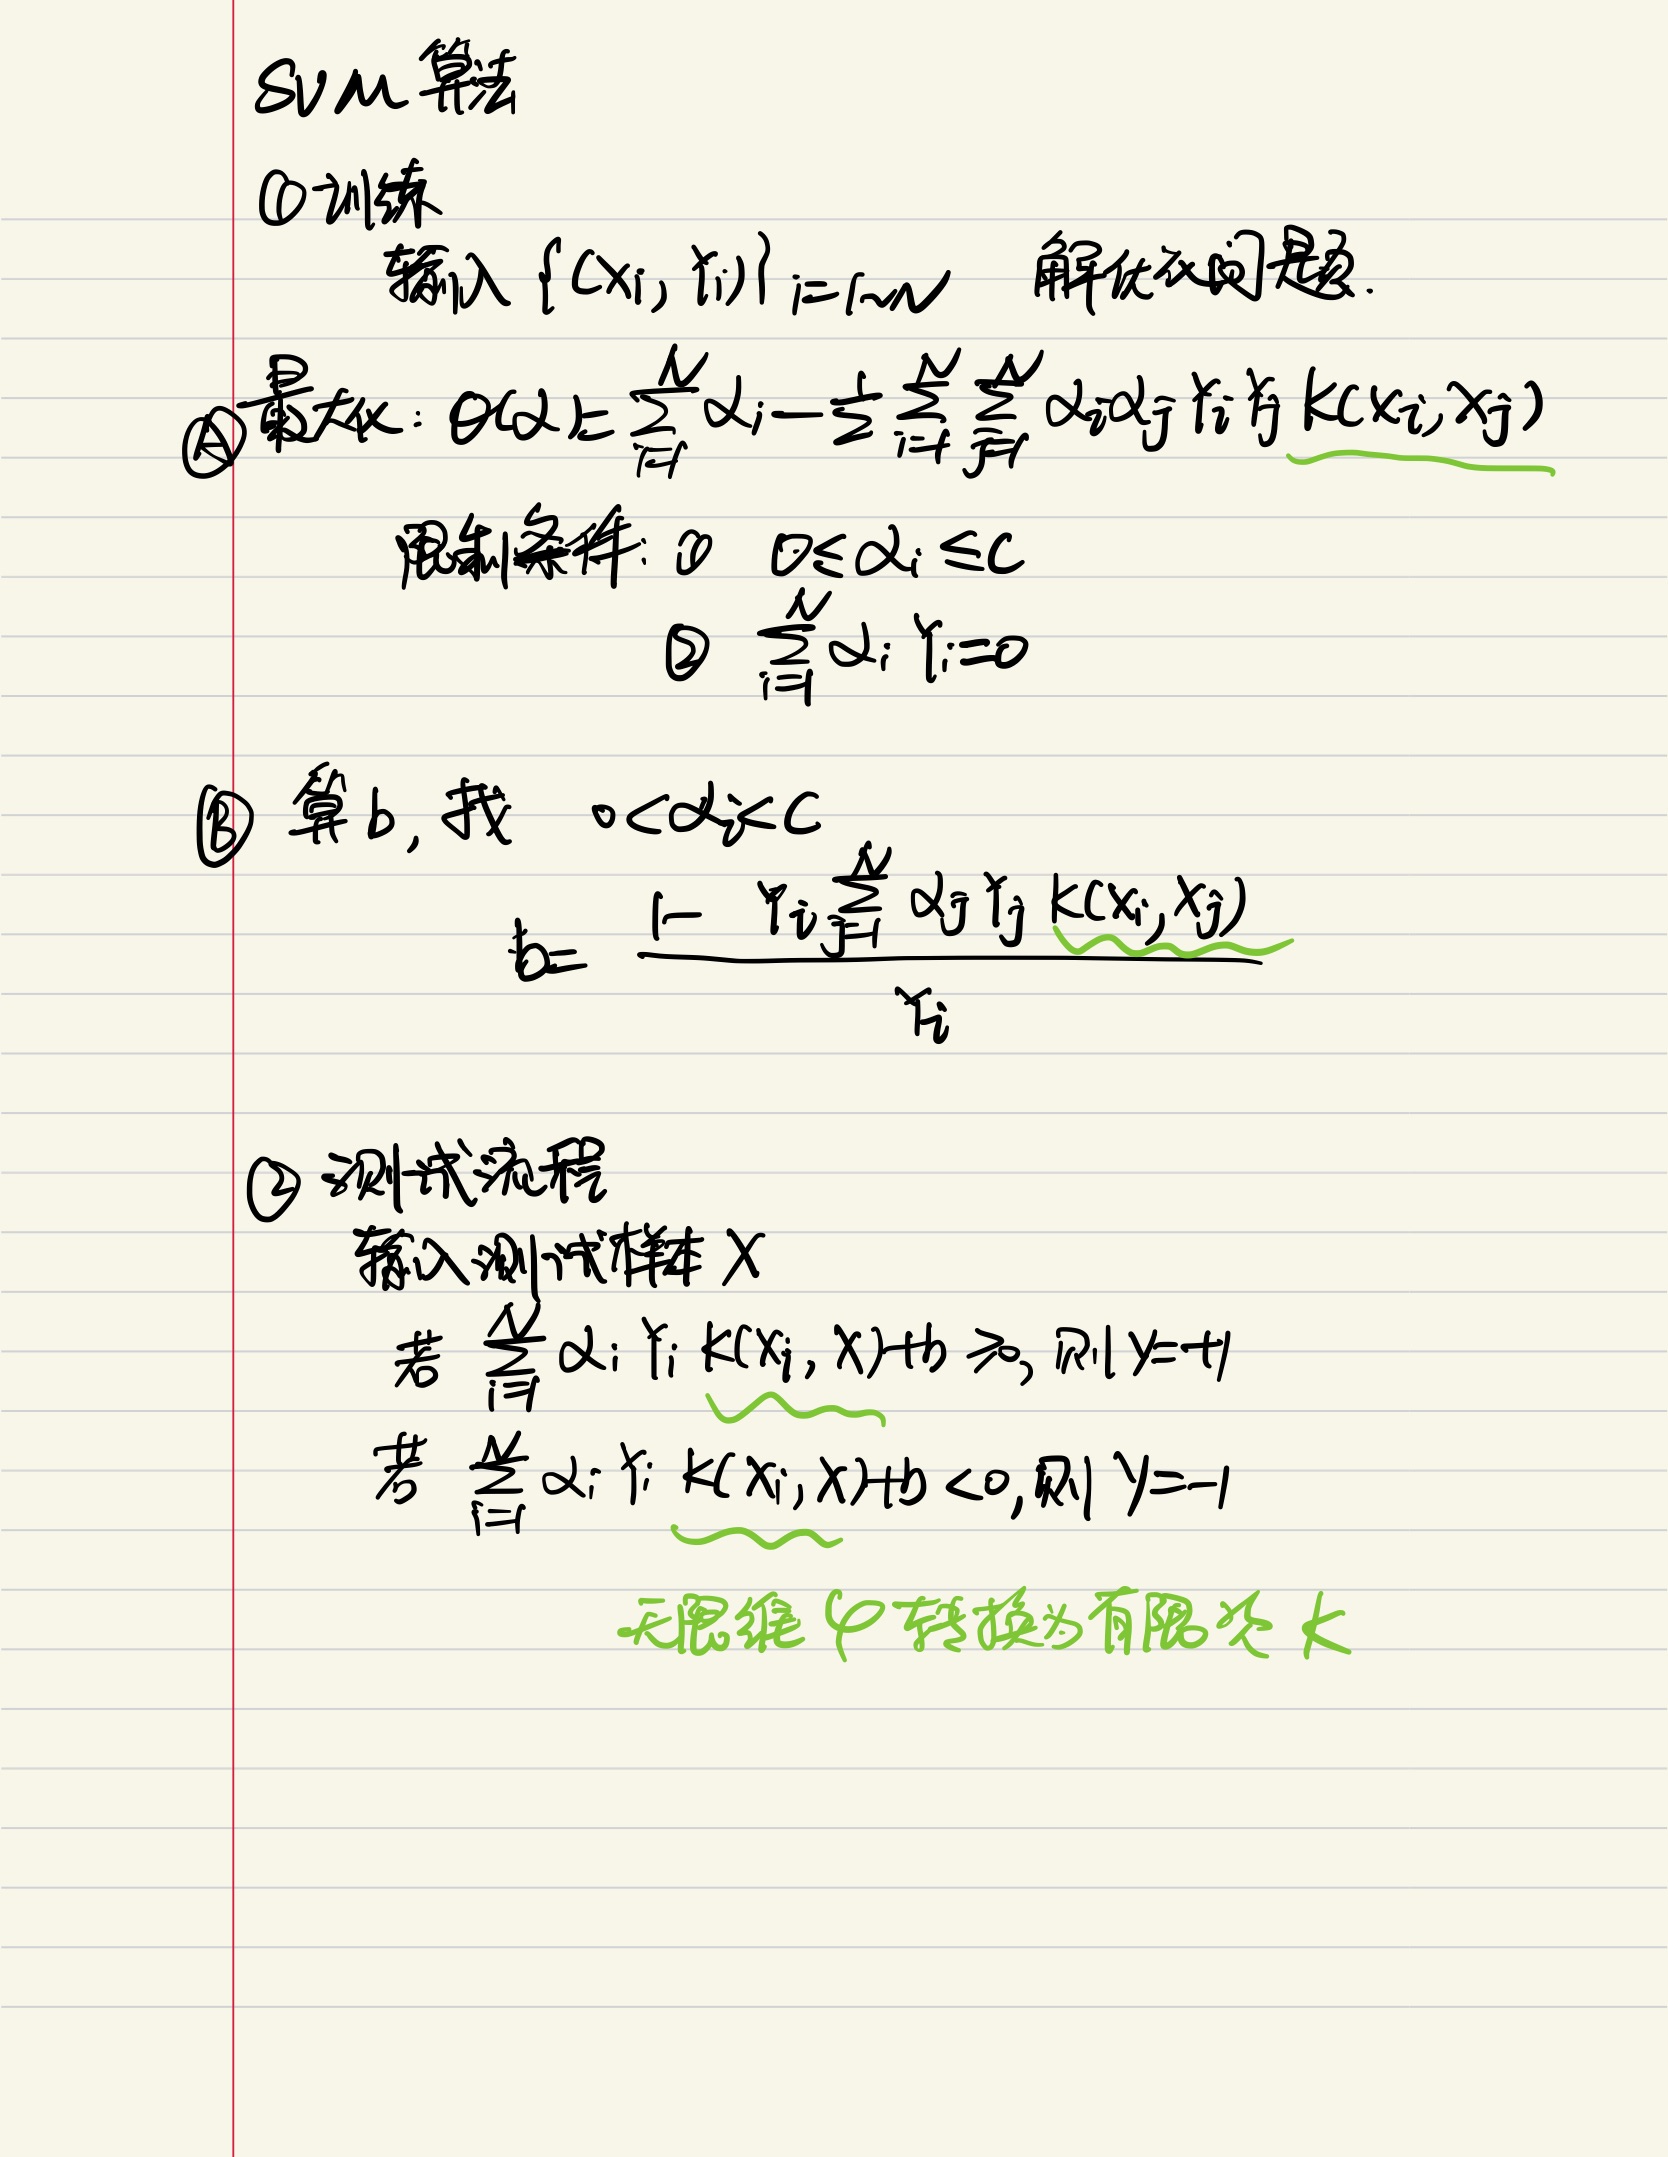 SVM 算法
① 训练
输入 {(Xi, Yi)} i=1~N 解优化问题.
Ⓐ 最大化: θ(α)=∑_{i=1}^{N} αi − 1/2 ∑_{i=1}^{N} ∑_{j=1}^{N} αiαj YiYj K(Xi, Xj)
限制条件: ① 0≤αi≤C
② ∑_{i=1}^{N} αi Yi=0
Ⓑ 算b, 找 0<αi<C
b= (1− Yi ∑_{j=1}^{N} αj Yj K(Xi, Xj)) / Yi
② 测试流程
输入测试样本 X
若 ∑_{i=1}^{N} αi Yi K(Xi, X)+b ≥0, 则 y=+1
若 ∑_{i=1}^{N} αi Yi K(Xi, X)+b <0, 则 y=−1
无限维 φ 转换为有限 K